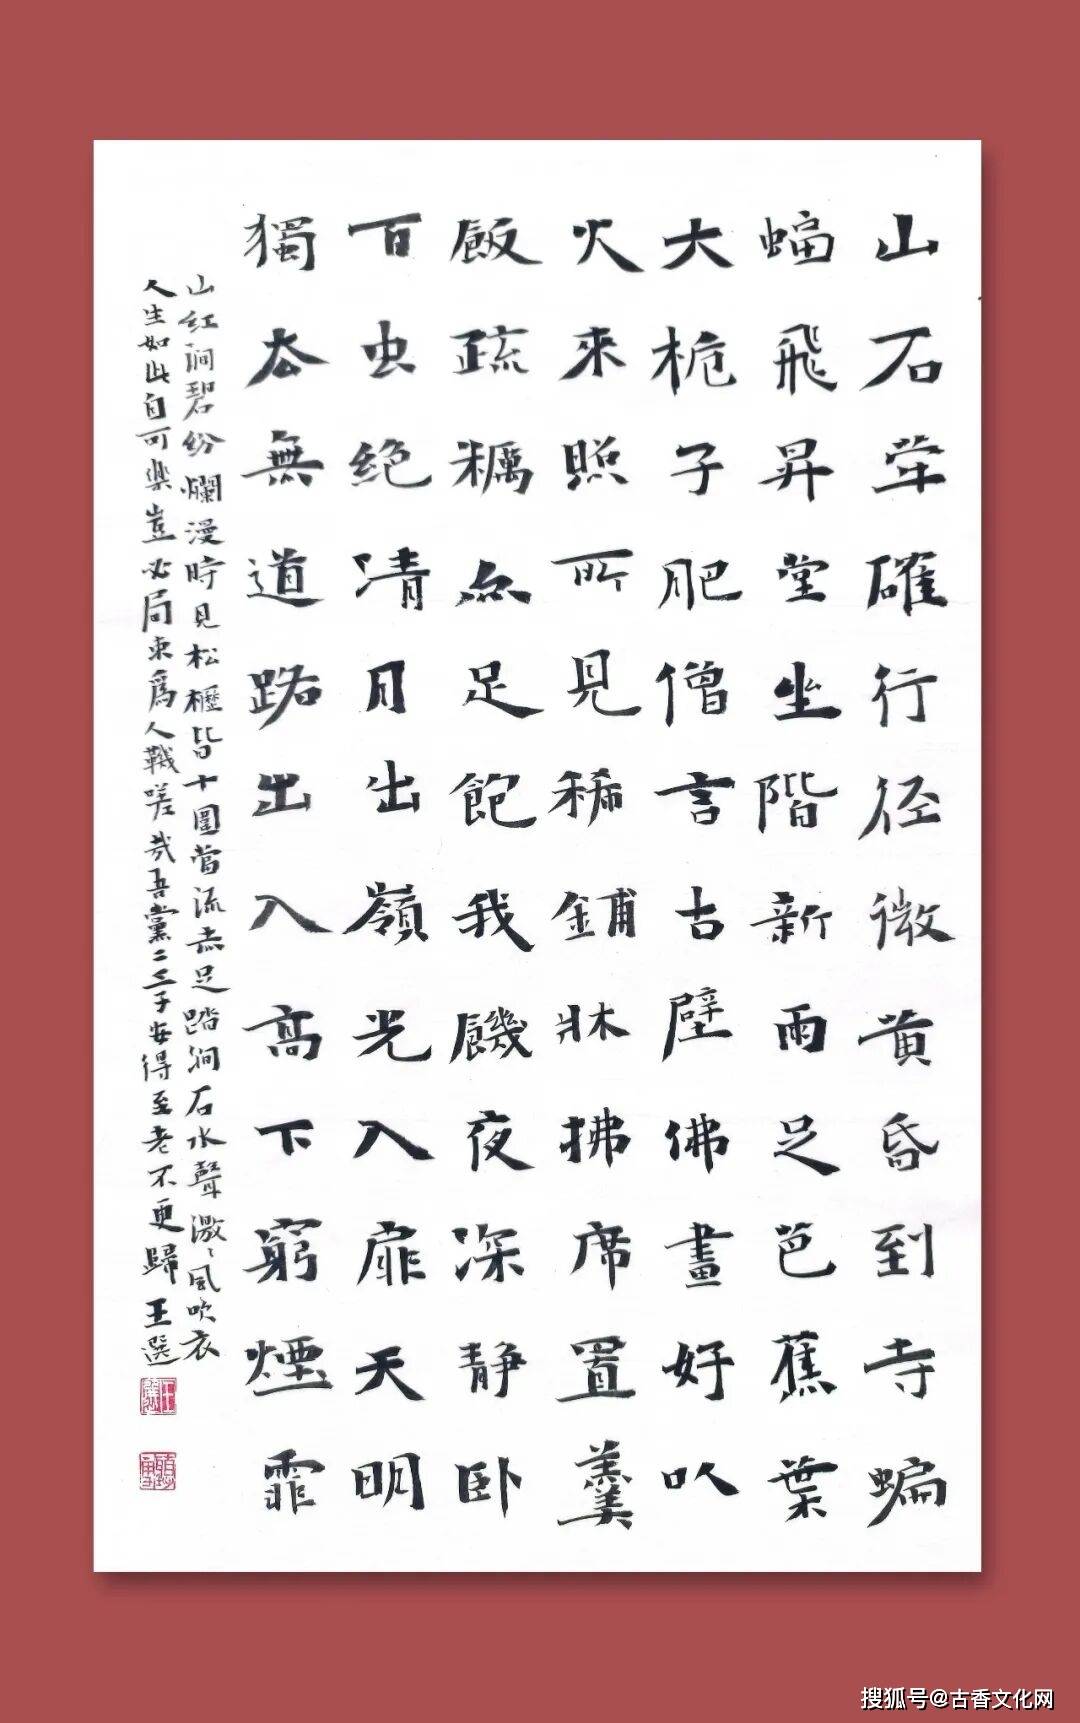 山石荦確行径微黄昏到寺蝙
蝠飛昇堂坐階新雨足芭蕉葉
大桅子肥僧言古壁佛畫好以
火來照所見稀鋪牀拂席置羹
飯疏糲点足飽我饑夜深静卧
百虫绝清月出嶺光入扉天明
獨去無道路出入高下窮煙霏
山红涧碧纷爛漫時見松櫪皆十圍當流赤足踏涧石水聲激〻風吹衣
人生如此自可樂豈必局束爲人鞿嗟哉吾黨二三子安得至老不更歸 王選
搜狐号@古香文化网